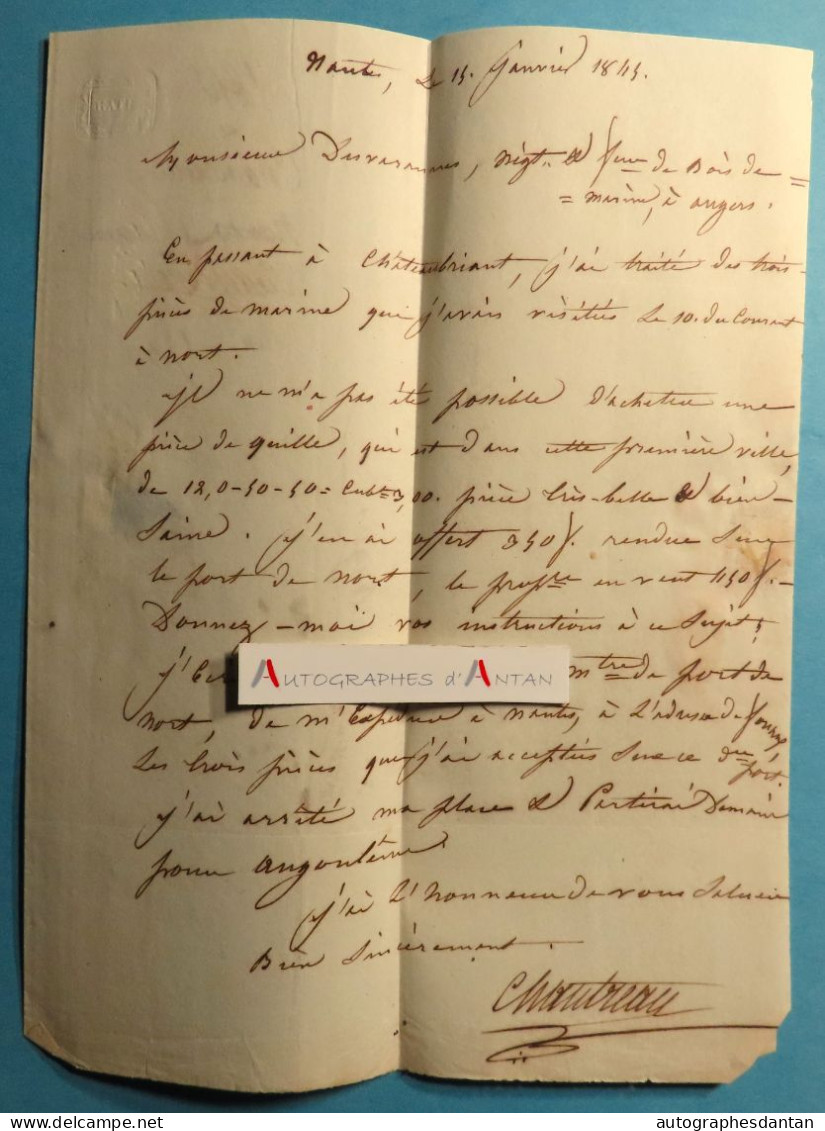 Nantes, le 15 Janvier 1845.
Monsieur Desvarannes, négt. & feur de Bois de =
= marine, à angers.
En passant à Châteaubriant, j'ai traité des trois
pièces de marine que j'avais visitées le 10. du Courant
à nort.
Il ne m'a pas été possible d'acheter une
pièce de quille, qui est dans cette première ville,
de 12,0-50-50 = Cubt 3,00. pièce très-belle & bien
saine. j'en ai offert 350f. rendue sur
le port de nort, le propre en veut 450f. -
Donnez-moi vos instructions à ce sujet;
j'
AUTOGRAPHES d'ANTAN
mtre de port de
nort, de m'Expédier à nantes, à l'adresse de
les trois pièces que j'ai acceptées sur ce port.
j'ai arrêté ma place & Partirai Demain
pour angoulême.
j'ai l'honneur de vous saluer
Bien sincèrement.
Chantreau
autographesdantan